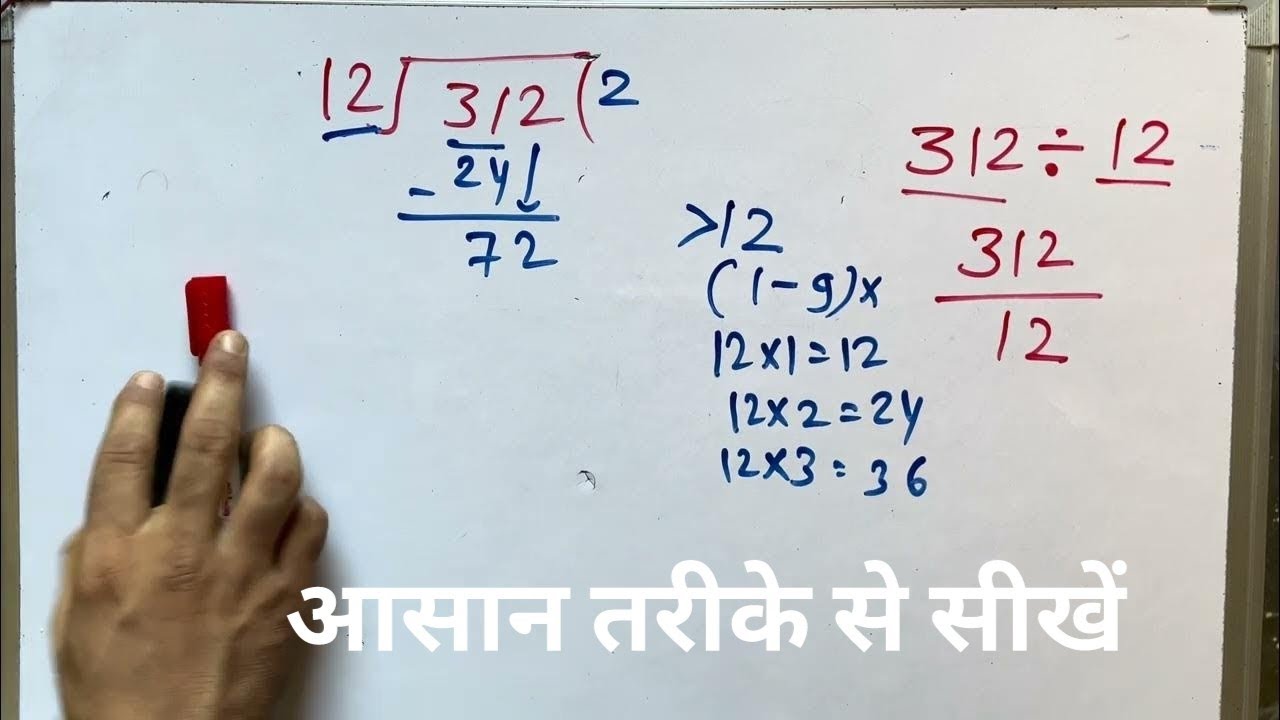 12 ) 312 ( 2
- 24
72
312 ÷ 12
312
12
>12
(1-9)x
12x1=12
12x2=24
12x3=36
आसान तरीके से सीखें